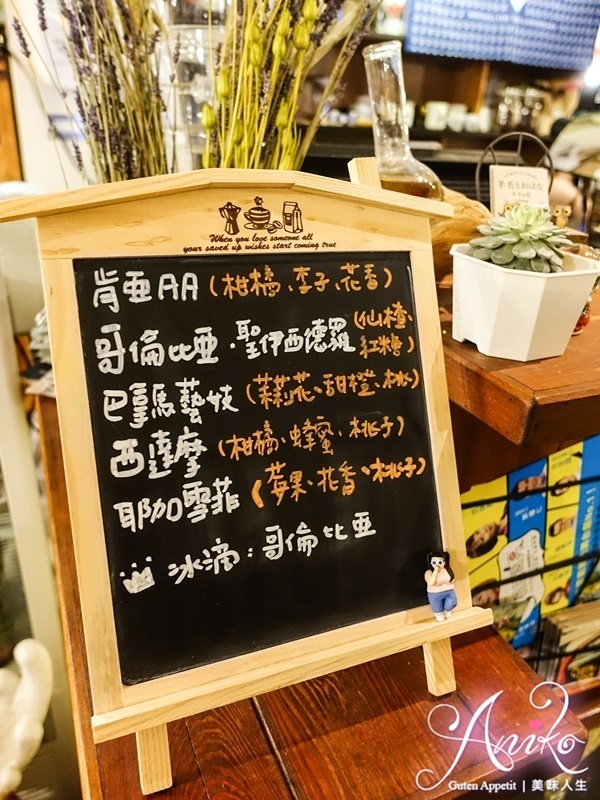 When you love someone all
your saved up wishes start coming true
肯亜AA（柑橘、李子、花香）
哥倫比亞．聖伊西德羅（仙楂、紅糖）
巴拿馬藝妓（茉莉花、甜橙、桃）
西達摩（柑橘、蜂蜜、桃子）
耶加雪菲（莓果、花香、桃子）
冰滴：哥倫比亞
羊毛とおはな
Aniko
Guten Appetit | 美味人生